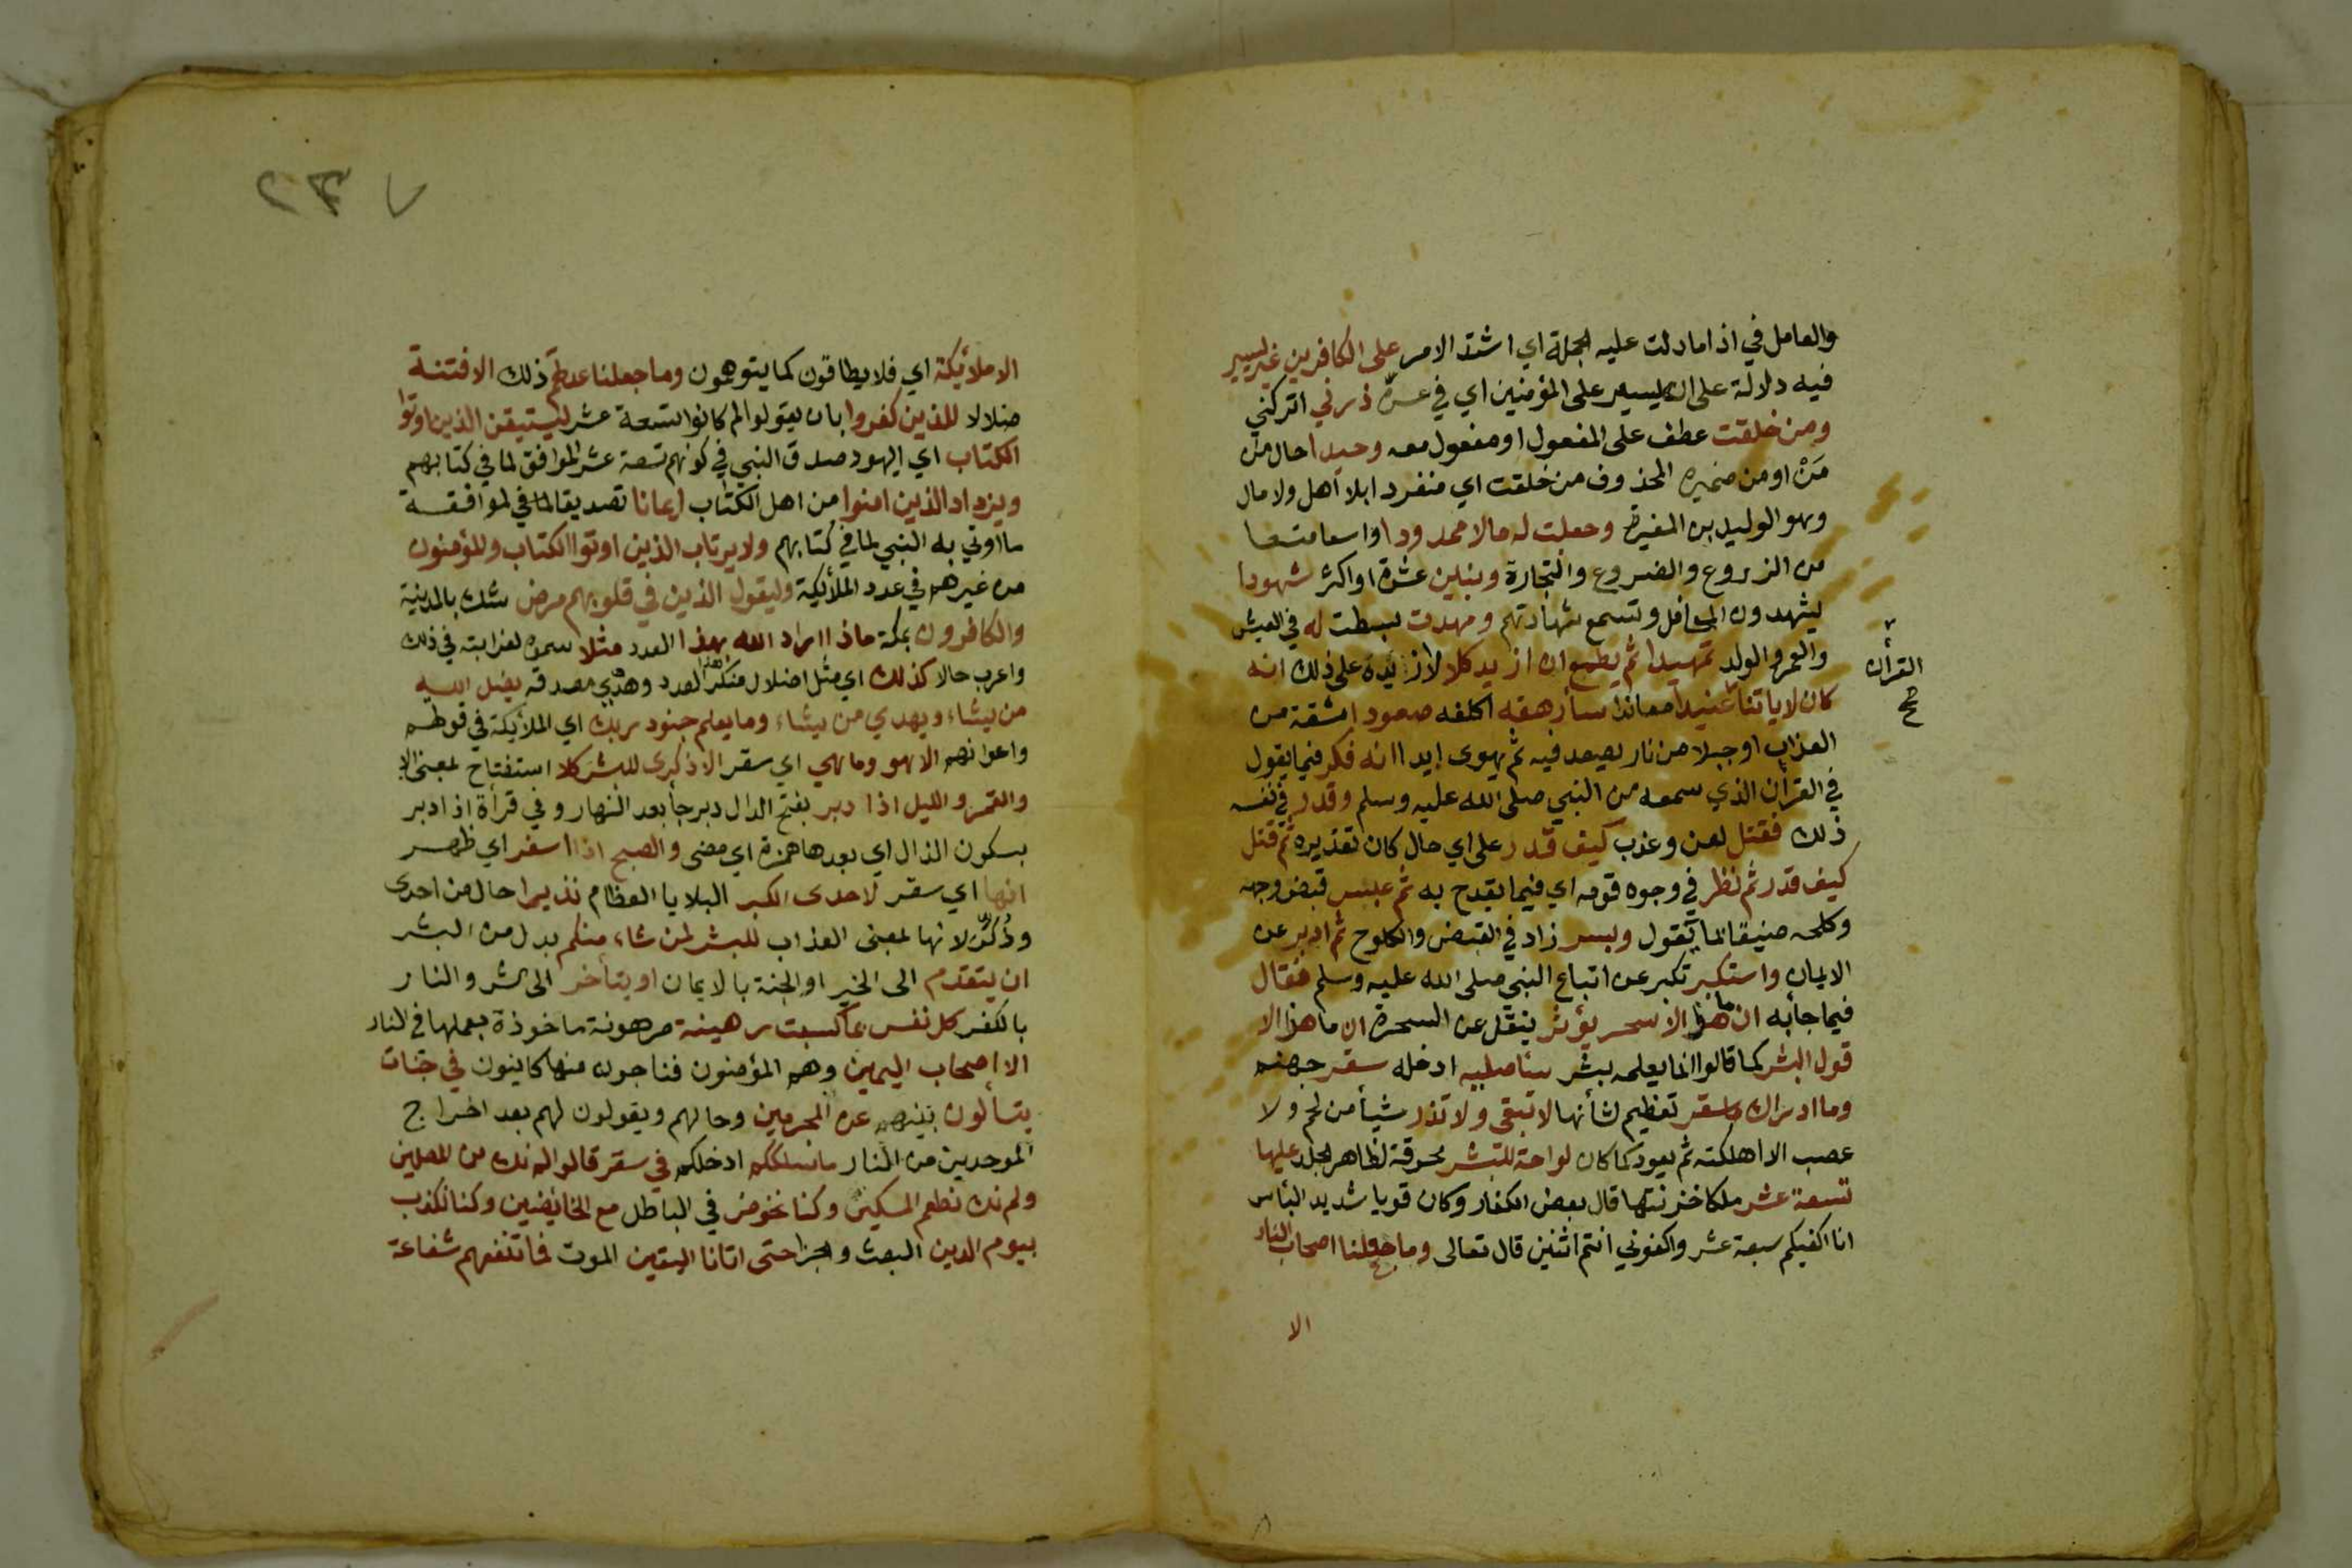 والعامل في اذا مادلت عليه الجملة اي اشتد الامر على الكافرين غير يسير
فيه دلالة على انه يسير على المؤمنين اي في عسره ذرني اتركني
ومن خلقت عطف على المفعول او مفعول معه وحيدا حال من
مَنْ او من ضميره المحذوف من خلقت اي منفردا بلا أهل ولا مال
وهو الوليد بن المغيرة وجعلت له مالا ممدودا واسعا متصلا
من الزروع والضروع والتجارة وبنين عشرة او اكثر شهودا
يشهدون المحافل وتسمع شهادتهم ومهدت بسطت له في العيش
والعمر والولد تمهيدا ثم يطمع ان ازيد كلا لا ازيده على ذلك انه
كان لاياتنا عنيدا معاندا سأرهقه اكلفه صعودا مشقة من
القرآن
صح
العذاب او جبلا من نار يصعد فيه ثم يهوى ابدا انه فكر فيما يقول
في القرآن الذي سمعه من النبي صلى الله عليه وسلم وقدر في نفسه
ذلك فقتل لعن وعذب كيف قدر على اي حال كان تقديره ثم قتل
كيف قدر ثم نظر في وجوه قومه اي فيما يقدح به ثم عبس قبض وجهه
وكلحه ضيقا لما يقول وبسر زاد في القبض والكلوح ثم ادبر عن
الايمان واستكبر تكبر عن اتباع النبي صلى الله عليه وسلم فقال
فيما جأ به ان ما هذا الا سحر يؤثر ينقل عن السحرة ان ما هذا الا
قول البشر كما قالوا انما يعلمه بشر سأصليه ادخله سقر جهنم
وما ادراك ما سقر تعظيم لشأنها لا تبقى ولا تذر شيأ من لحم ولا
عصب الا اهلكته ثم يعود كما كان لواحة للبشر محرقة لظاهر الجلد عليها
تسعة عشر ملكا خزنتها قال بعض الكفار وكان قويا شديد البأس
انا اكفيكم سبعة عشر واكفوني انتم اثنين قال تعالى وما جعلنا اصحاب النار
الا
٢٣٧
الا ملائكة اي فلا يطاقون كما يتوهمون وما جعلنا عدتهم ذلك الا فتنة
ضلالا للذين كفروا بان يقولوا لم كانوا تسعة عشر ليستيقن الذين اوتوا
الكتاب اي اليهود صدق النبي في كونهم تسعة عشر الموافق لما في كتابهم
ويزداد الذين امنوا من اهل الكتاب ايمانا تصديقا لما في لموافقة
ما اوتي به النبي لما في كتابهم ولا يرتاب الذين اوتوا الكتاب وللمؤمنون
من غيرهم في عدد الملأيكة وليقول الذين في قلوبهم مرض شك بالمدينة
والكافرون بمكة ماذا اراد الله بهذا العدد مثلا سموه لغرابته في ذلك
واعرب حالا كذلك اي مثل اضلال منكر هذا العدد وهدي مصدقه يضل الله
من يشاء ويهدي من يشاء وما يعلم جنود ربك اي الملأيكة في قوتهم
واعوانهم الا هو وما هي اي سقر الا ذكرى للبشر كلا استفتاح بمعنى الا
والقمر والليل اذا دبر بفتح الدال دبر جأ بعد النهار وفي قرأة اذ ادبر
بسكون الذال اي بعدها همزة اي مضى والصبح اذا اسفر اي ظهر
انها اي سقر لاحدى الكبر البلايا العظام نذيرا حال من احدى
وذُكّر لانها بمعنى العذاب للبشر لمن شاء منكم بدل من البشر
ان يتقدم الى الخير او الجنة بالايمان او يتأخر الى الشر والنار
بالكفر كل نفس بما كسبت رهينة مرهونة ماخوذة بعملها في النار
الا اصحاب اليمين وهم المؤمنون فناجون منها كاينون في جنات
يتسألون بينهم عن المجرمين وحالهم ويقولون لهم بعد اخراج
الموحدين من النار ما سلككم ادخلكم في سقر قالوا لم نك من المصلين
ولم نك نطعم المسكين وكنا نخوض في الباطل مع الخايضين وكنا نكذب
بيوم الدين البعث والجزا حتى اتانا اليقين الموت فما تنفعهم شفاعة